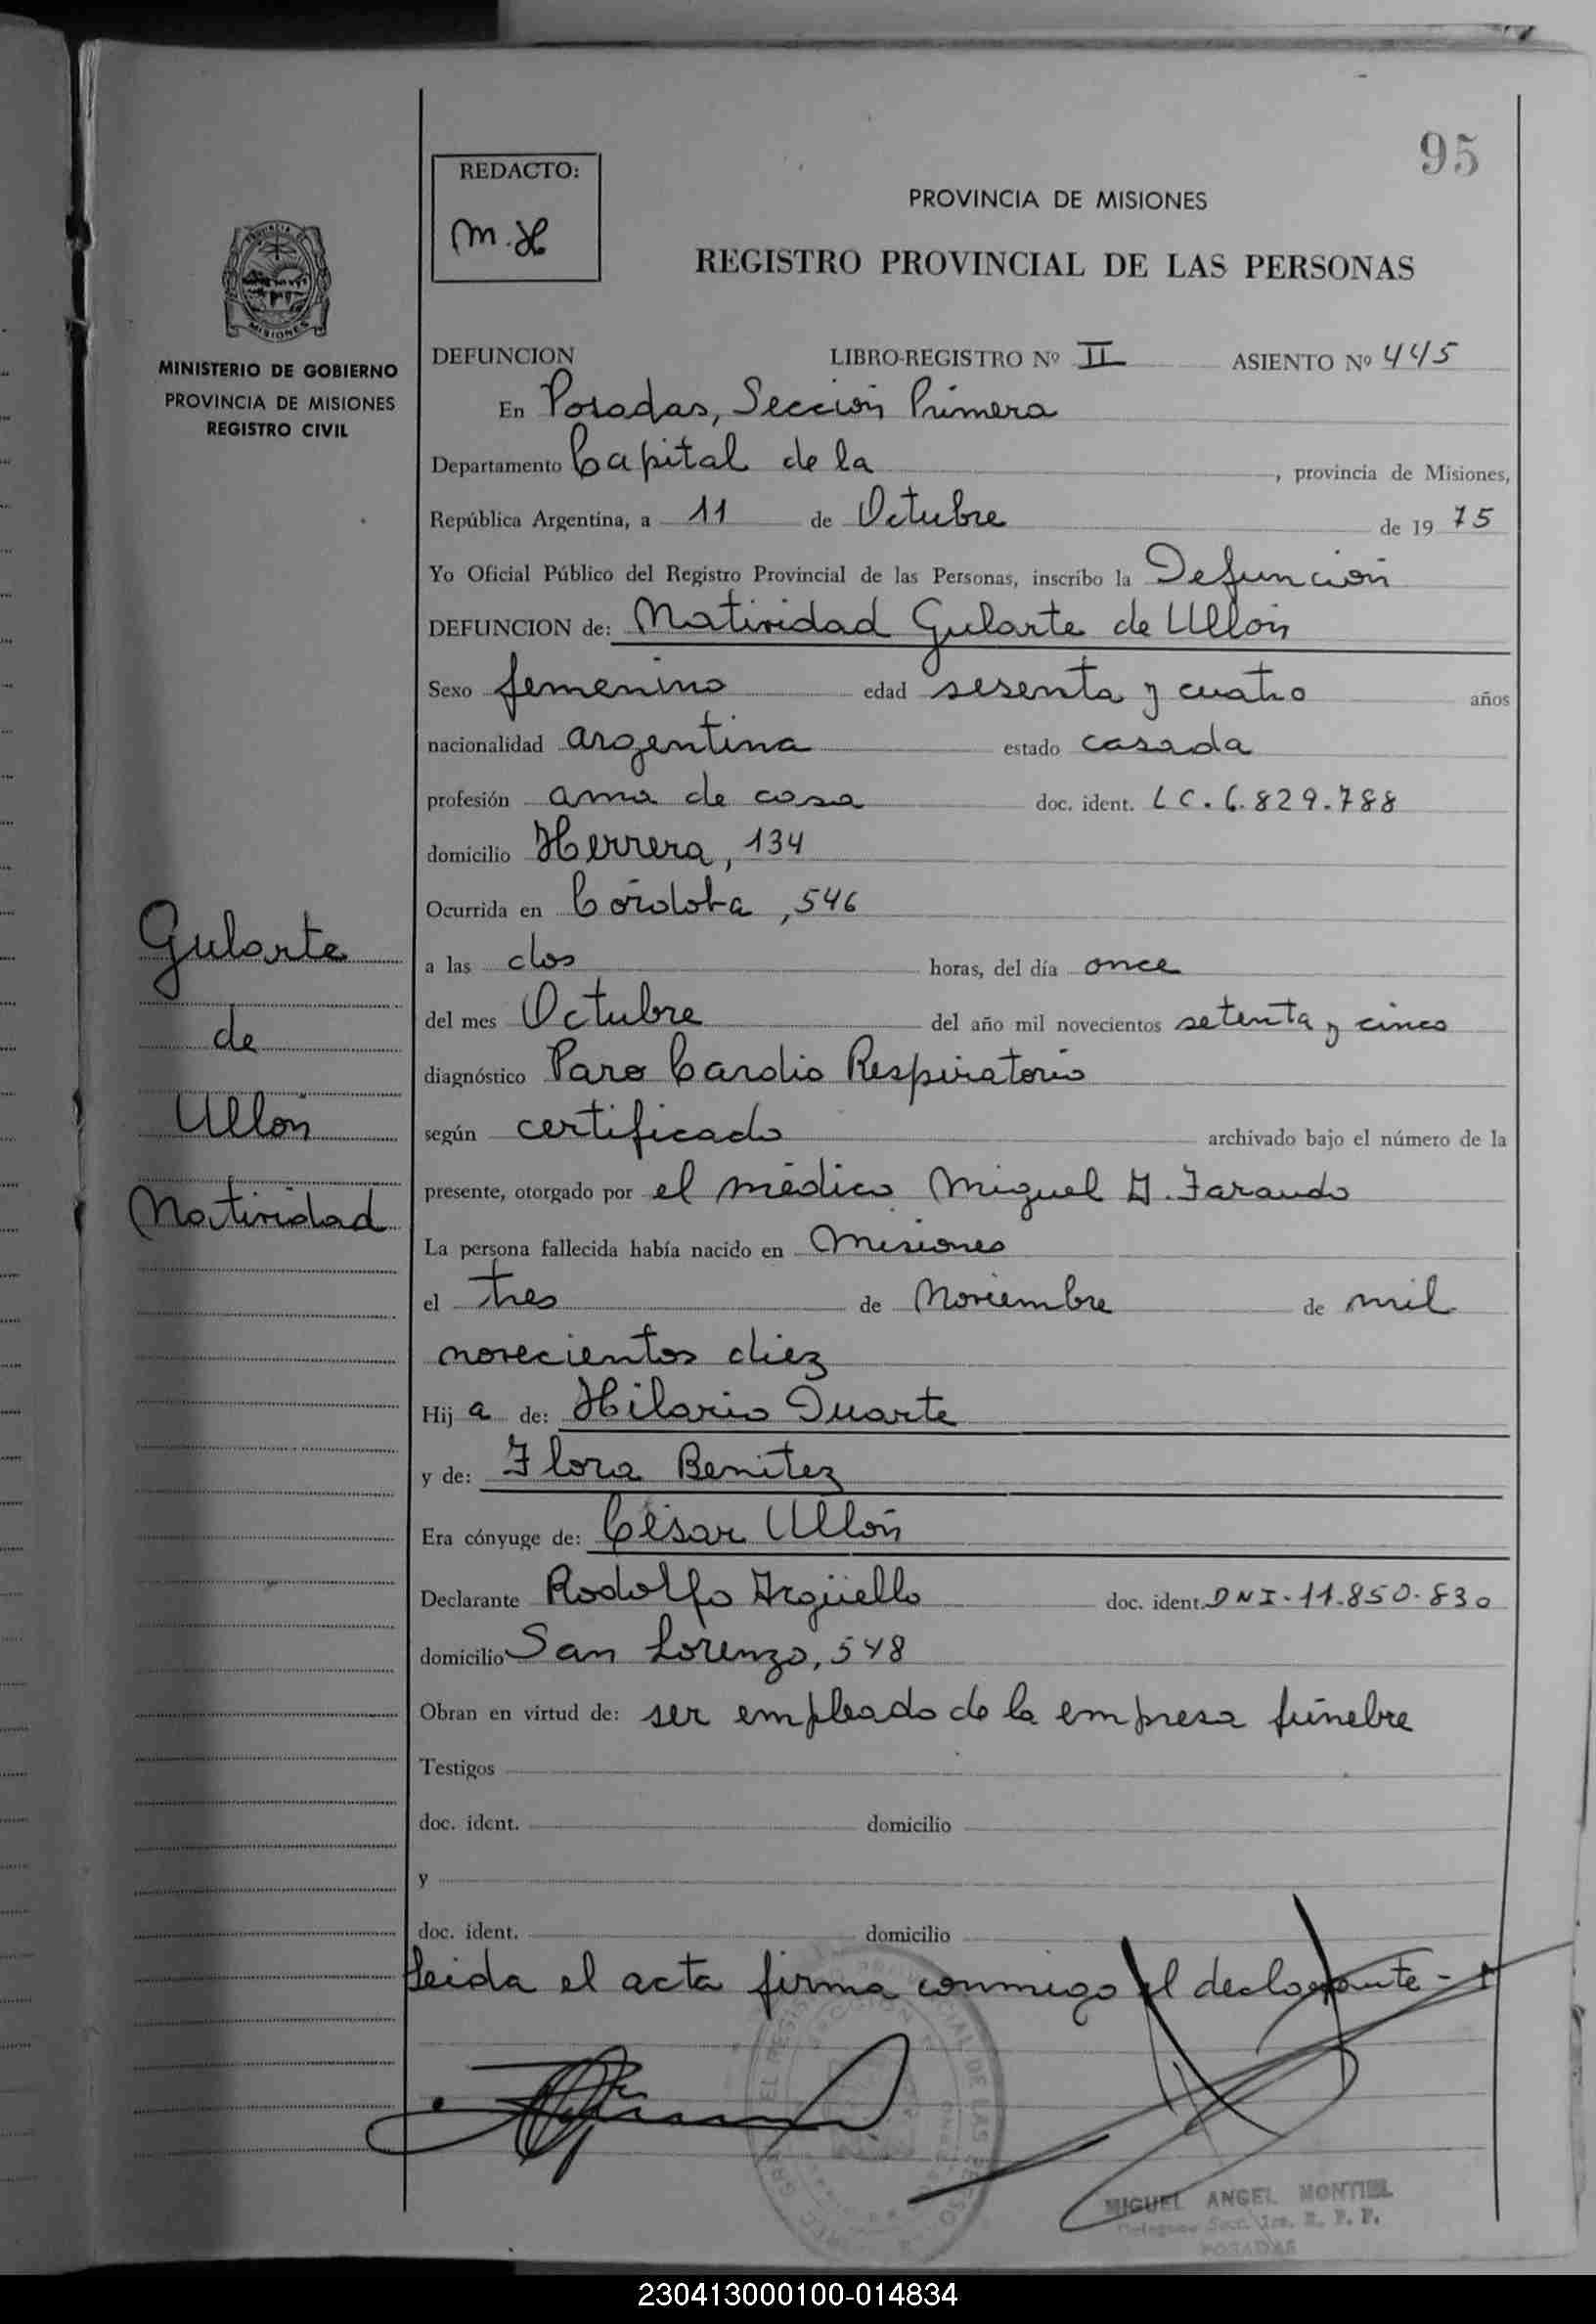 95
REDACTO:
M.H
PROVINCIA DE MISIONES
REGISTRO PROVINCIAL DE LAS PERSONAS
MINISTERIO DE GOBIERNO
PROVINCIA DE MISIONES
REGISTRO CIVIL
DEFUNCION LIBRO-REGISTRO Nº II ASIENTO Nº 445
En Posadas, Sección Primera
Departamento Capital de la , provincia de Misiones,
República Argentina, a 11 de Octubre de 19 75
Yo Oficial Público del Registro Provincial de las Personas, inscribo la Defunción
DEFUNCION de: Natividad Gularte de Ullón
Sexo femenino edad sesenta y cuatro años
nacionalidad argentina estado casada
profesión ama de casa doc. ident. LC. 6.829.788
domicilio Herrera, 134
Ocurrida en Córdoba, 546
a las dos horas, del día once
del mes Octubre del año mil novecientos setenta y cinco
diagnóstico Paro Cardio Respiratorio
según certificado archivado bajo el número de la
presente, otorgado por el médico Miguel A. Farando
La persona fallecida había nacido en Misiones
el tres de Noviembre de mil
novecientos diez
Hij a de: Hilario Duarte
y de: Flora Benítez
Era cónyuge de: César Ullón
Declarante Rodolfo Argüello doc. ident. DNI-11.850.830
domicilio San Lorenzo, 548
Obran en virtud de: ser empleado de la empresa fúnebre
Testigos
doc. ident. domicilio
y
doc. ident. domicilio
Leida el acta firma conmigo el declarante-
Gularte
de
Ullón
Natividad
MIGUEL ANGEL MONTIEL
POSADAS
230413000100-014834